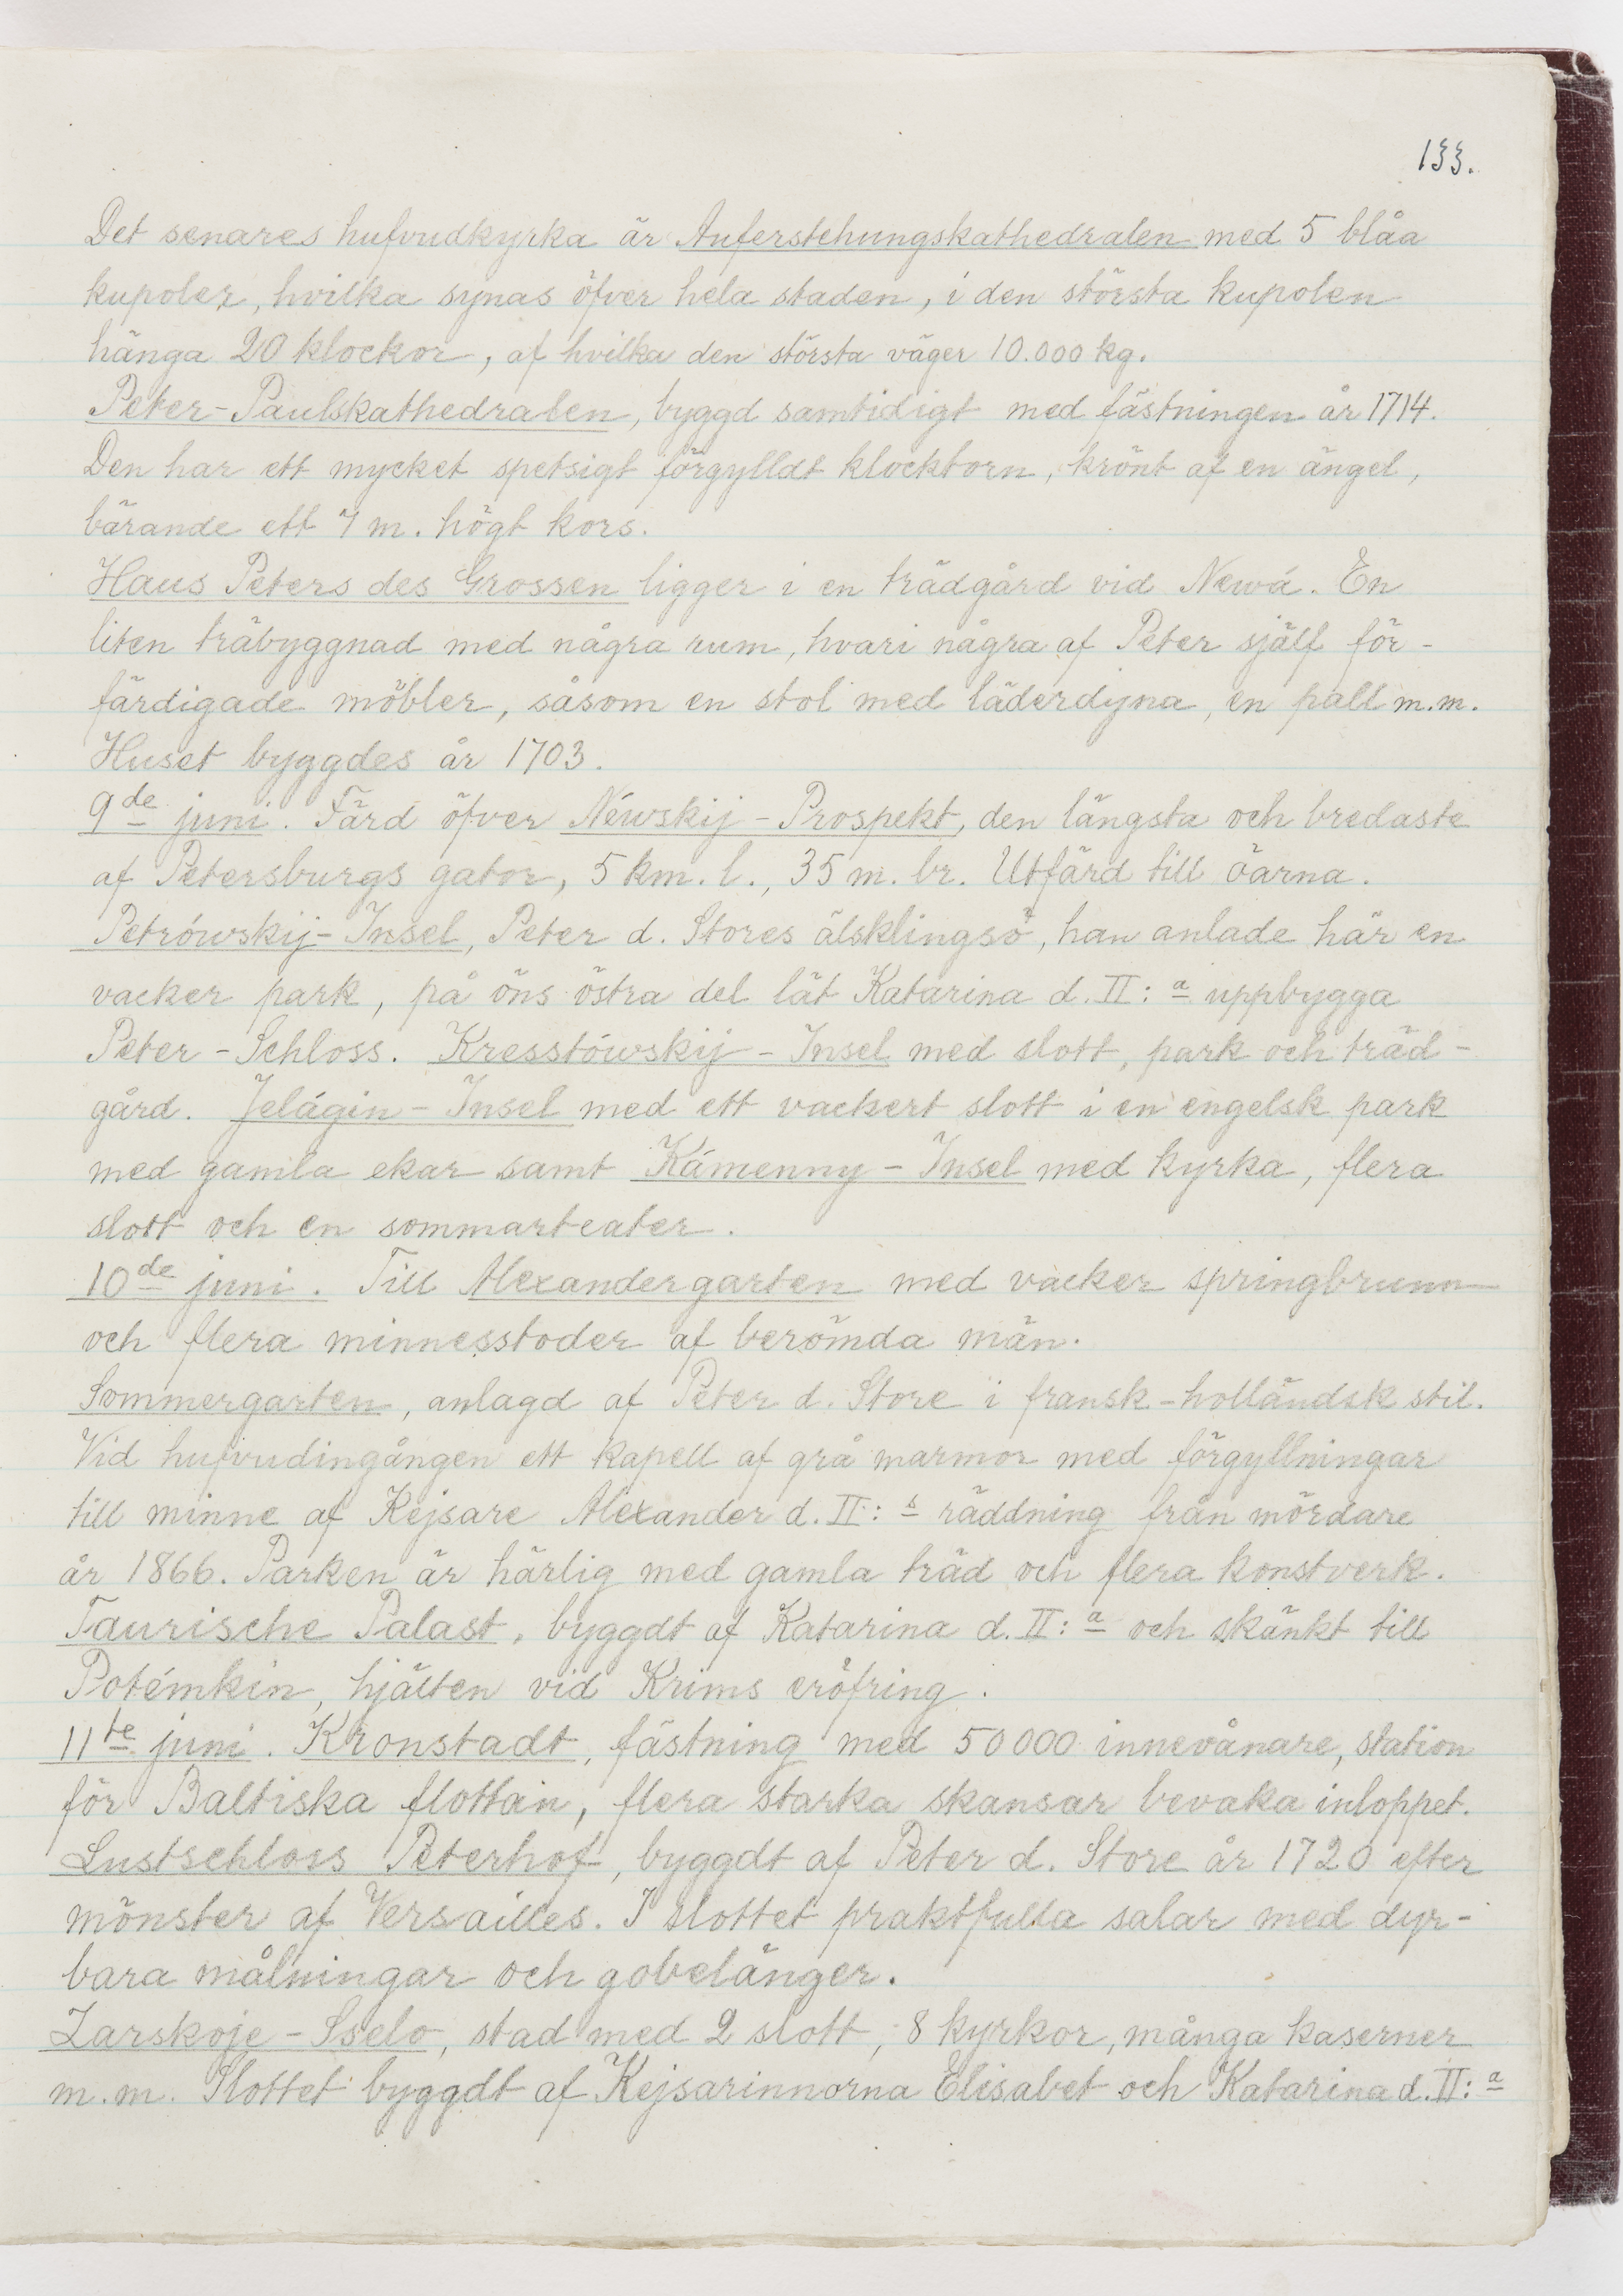 133.
Det senares hufvudkyrka är Auferstehungskathedralen med 5 blåa
kupoler, hvilka synas öfver hela staden, i den största kupolen
hänga 20 klockor, af hvilka den största väger 10.000 kg.
Peter-Paulskathedralen, byggd samtidigt med fästningen år 1714.
Den har ett mycket spetsigt förgylldt klocktorn, krönt af en ängel,
bärande ett 7 m. högt kors.
Haus Peters des Grossen ligger i en trädgård vid Newá. En
liten träbyggnad med några rum, hvari några af Peter själf för-
färdigade möbler, såsom en stol med läderdyna, en pall m.m.
Huset byggdes år 1703.
9de juni. Färd öfver Néwskij-Prospekt, den längsta och bredaste
af Petersburgs gator, 5 km. l., 35 m. br. Utfärd till öarna.
Petrówskij-Insel, Peter d. Stores älsklingsö, han anlade här en
vacker park, på öns östra del lät Katarina d. II:a uppbygga
Peter-Schloss. Kresstówskij-Insel med slott, park och träd-
gård. Jelágin-Insel med ett vackert slott i en engelsk park
med gamla ekar samt Kámenny-Insel med kyrka, flera
slott och en sommarteater.
10de juni. Till Alexandergarten med vacker springbrunn
och flera minnesstoder af berömda män.
Sommergarten, anlagd af Peter d. Store i fransk-holländsk stil.
Vid hufvudingången ett kapell af grå marmor med förgyllningar
till minne af Kejsare Alexander d. II:s räddning från mördare
år 1866. Parken är härlig med gamla träd och flera konstverk.
Taurische Palast, byggdt af Katarina d. II:a och skänkt till
Potémkin, hjälten vid Krims eröfring.
11te juni. Kronstadt, fästning med 50000 innevånare, station
för Baltiska flottan, flera starka skansar bevaka inloppet.
Lustschloss Peterhof, byggdt af Peter d. Store år 1720 efter
mönster af Versailles. I slottet praktfulla salar med dyr-
bara målningar och gobelänger.
Zarskoje-Sselo, stad med 2 slott, 8 kyrkor, många kaserner
m.m. Slottet byggdt af Kejsarinnorna Elisabet och Katarina d. II:a